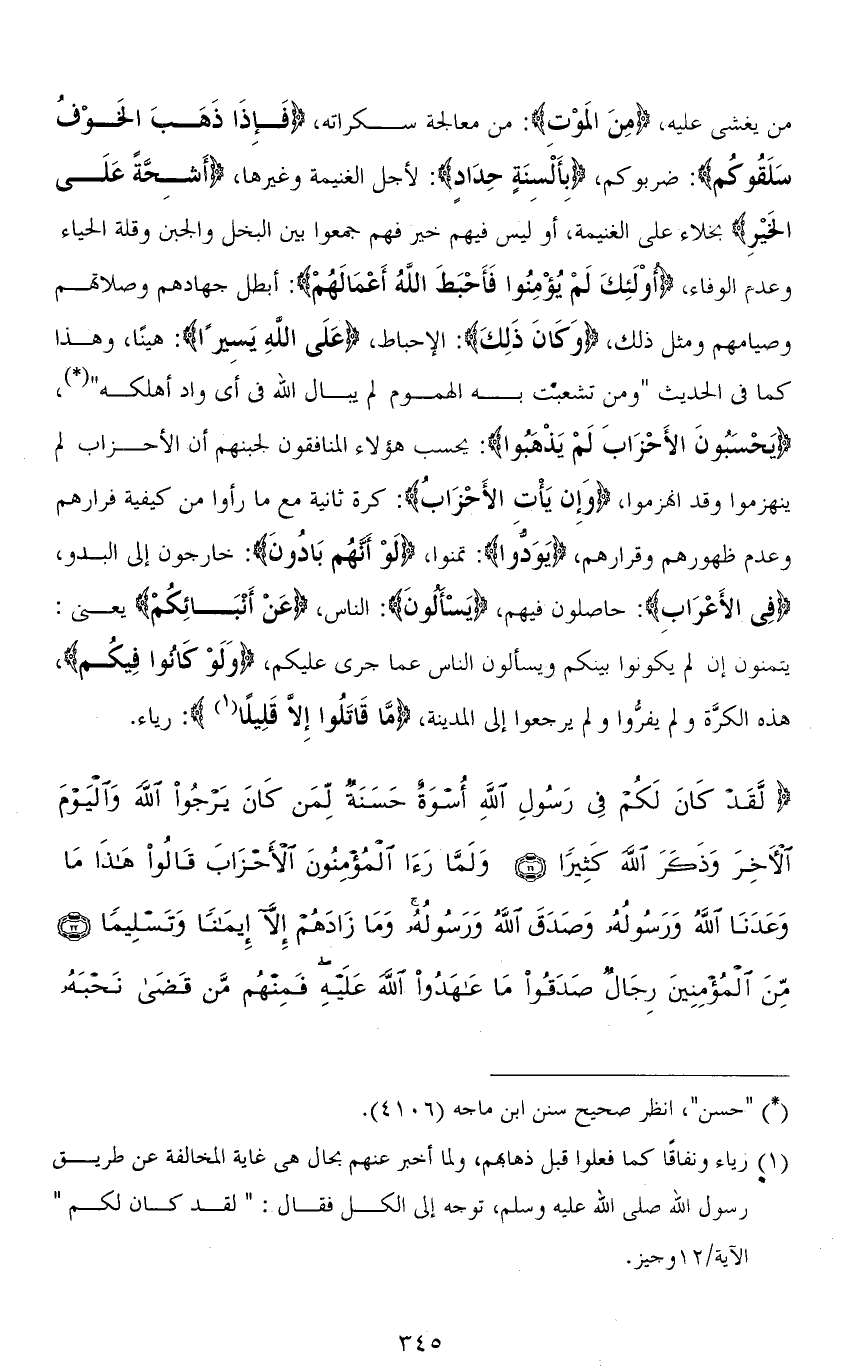 من يغشى عليه، ﴿مِنَ الْمَوْتِ﴾: من معالجة سكراته، ﴿فَإِذَا ذَهَبَ الْخَوْفُ
سَلَقُوكُم﴾: ضربوكم، ﴿بِأَلْسِنَةٍ حِدَادٍ﴾: لأجل الغنيمة وغيرها، ﴿أَشِحَّةً عَلَى
الْخَيْرِ﴾ بخلاء على الغنيمة، أو ليس فيهم خير فهم جمعوا بين البخل والجبن وقلة الحياء
وعدم الوفاء، ﴿أُوْلَئِكَ لَمْ يُؤْمِنُوا فَأَحْبَطَ اللَّهُ أَعْمَالَهُمْ﴾: أبطل جهادهم وصلاتهم
وصيامهم ومثل ذلك، ﴿وَكَانَ ذَلِكَ﴾: الإحباط، ﴿عَلَى اللَّهِ يَسِيرًا﴾: هينًا، وهذا
كما فى الحديث "ومن تشعبت به الهموم لم يبال الله فى أى واد أهلكه"(*)،
﴿يَحْسَبُونَ الأَحْزَابَ لَمْ يَذْهَبُوا﴾: يحسب هؤلاء المنافقون لجبنهم أن الأحزاب لم
ينهزموا وقد انهزموا، ﴿وَإِن يَأْتِ الأَحْزَابُ﴾: كرة ثانية مع ما رأوا من كيفية فرارهم
وعدم ظهورهم وقرارهم، ﴿يَوَدُّوا﴾: تمنوا، ﴿لَوْ أَنَّهُم بَادُونَ﴾: خارجون إلى البدو،
﴿فِي الأَعْرَابِ﴾: حاصلون فيهم، ﴿يَسْأَلُونَ﴾: الناس، ﴿عَنْ أَنْبَائِكُمْ﴾ يعنى :
يتمنون إن لم يكونوا بينكم ويسألون الناس عما جرى عليكم، ﴿وَلَوْ كَانُوا فِيكُم﴾،
هذه الكرَّة و لم يفرُّوا و لم يرجعوا إلى المدينة، ﴿مَّا قَاتَلُوا إِلاَّ قَلِيلًا(١) ﴾: رياء.
﴿ لَّقَدْ كَانَ لَكُمْ فِى رَسُولِ ٱللَّهِ أُسْوَةٌ حَسَنَةٌ لِّمَن كَانَ يَرْجُوا۟ ٱللَّهَ وَٱلْيَوْمَ
ٱلْـَٔاخِرَ وَذَكَرَ ٱللَّهَ كَثِيرًا ۝٢١ وَلَمَّا رَءَا ٱلْمُؤْمِنُونَ ٱلْأَحْزَابَ قَالُوا۟ هَـٰذَا مَا
وَعَدَنَا ٱللَّهُ وَرَسُولُهُۥ وَصَدَقَ ٱللَّهُ وَرَسُولُهُۥ ۚ وَمَا زَادَهُمْ إِلَّآ إِيمَـٰنًا وَتَسْلِيمًا ۝٢٢
مِّنَ ٱلْمُؤْمِنِينَ رِجَالٌ صَدَقُوا۟ مَا عَـٰهَدُوا۟ ٱللَّهَ عَلَيْهِ ۖ فَمِنْهُم مَّن قَضَىٰ نَحْبَهُۥ
(*) "حسن"، انظر صحيح سنن ابن ماجه (٤١٠٦).
(١) رياء ونفاقًا كما فعلوا قبل ذهابهم، ولما أخبر عنهم بحال هى غاية المخالفة عن طريق
رسول الله صلى الله عليه وسلم، توجه إلى الكل فقال : " لقد كان لكم "
الآية/١٢وجيز.
٣٤٥